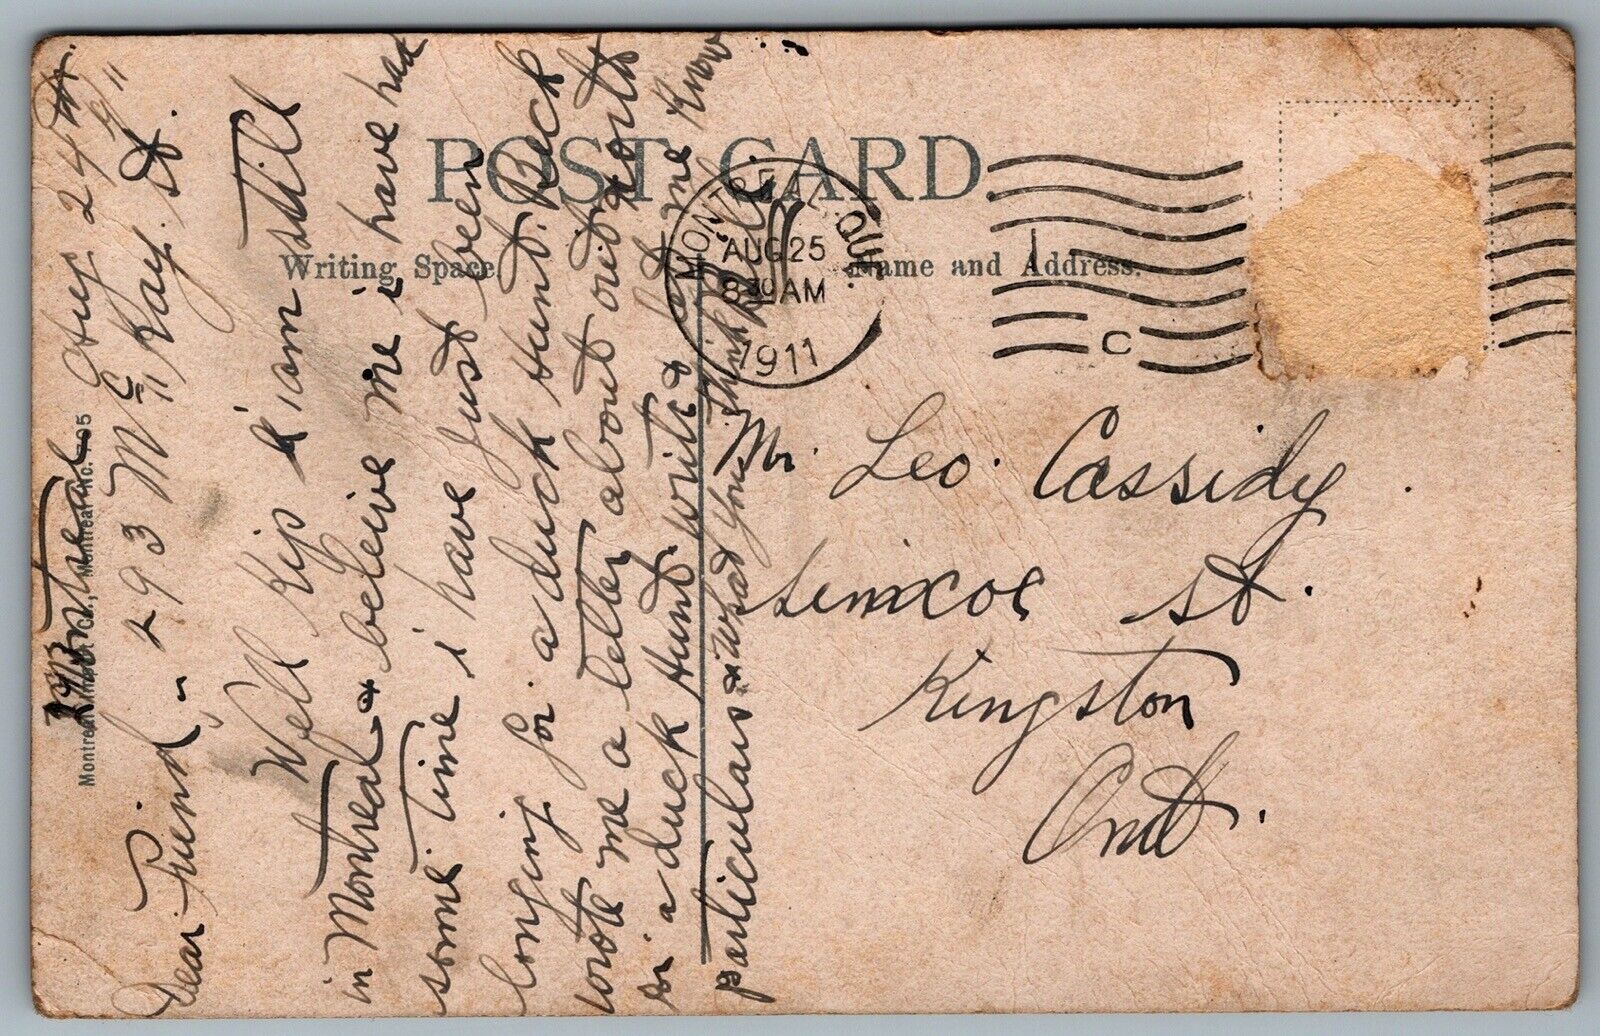 POST CARD
Writing Space
Name and Address.
MONTREAL, QUE.
AUG 25
8 30 AM
1911
C
Montreal Aug 24th/11
293 Mc Kay. St.
Dear Friend,
Well Kip i am still
in Montreal & beleive me i have had
some time i have just been
longing for a duck Hunt. Beck
wrote me a letter about out going
on a duck Hunt. write & let me know
particulars & what you think
Mr. Leo. Cassidy.
Simcoe St.
Kingston
Ont.
Montreal No. 705